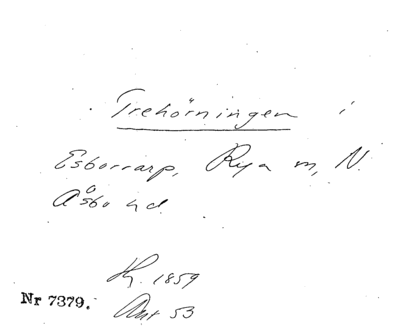 Trehörningen i
Esborrarp, Rya sn, N.
Åsbo hd.
Hg. 1859
Nr 7379.
Ant 53